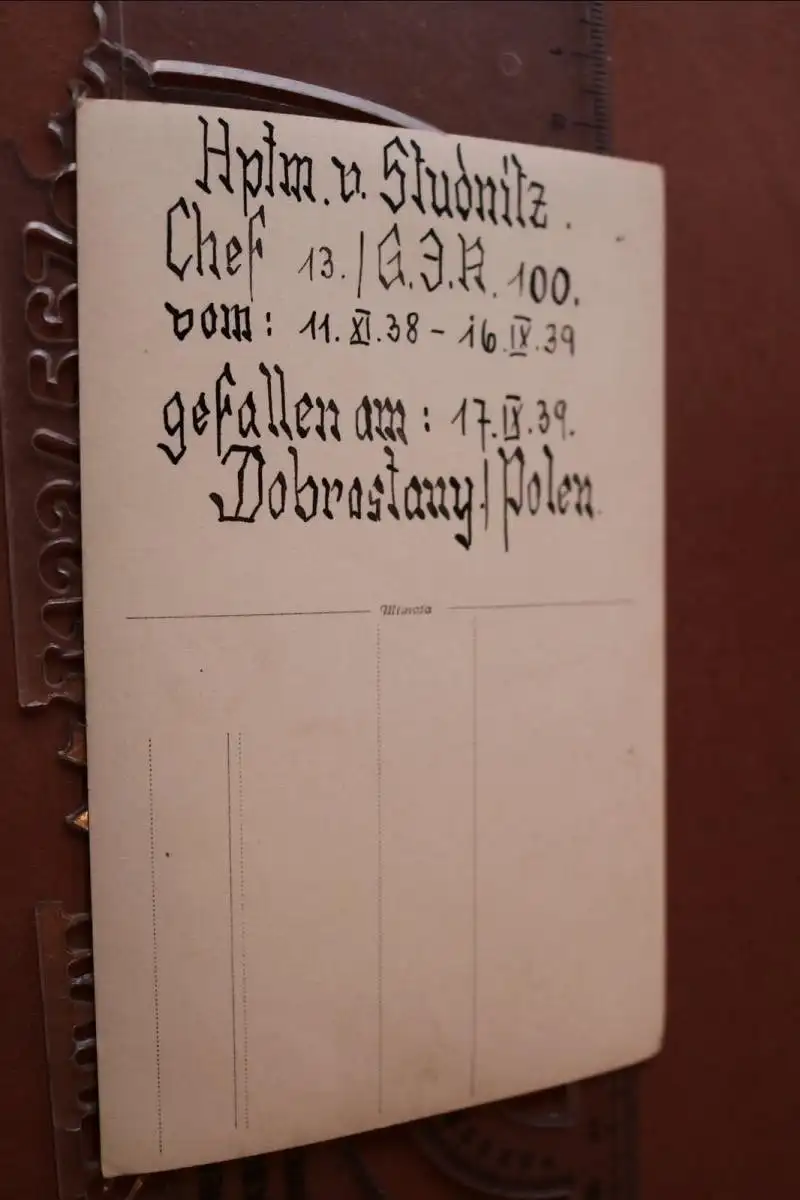 Hptm. v. Studnitz.
Chef 13./G.J.R. 100.
vom: 11.XI.38 - 16.IX.39
gefallen am: 17.IX.39.
Dobrostany/Polen.
Mimosa